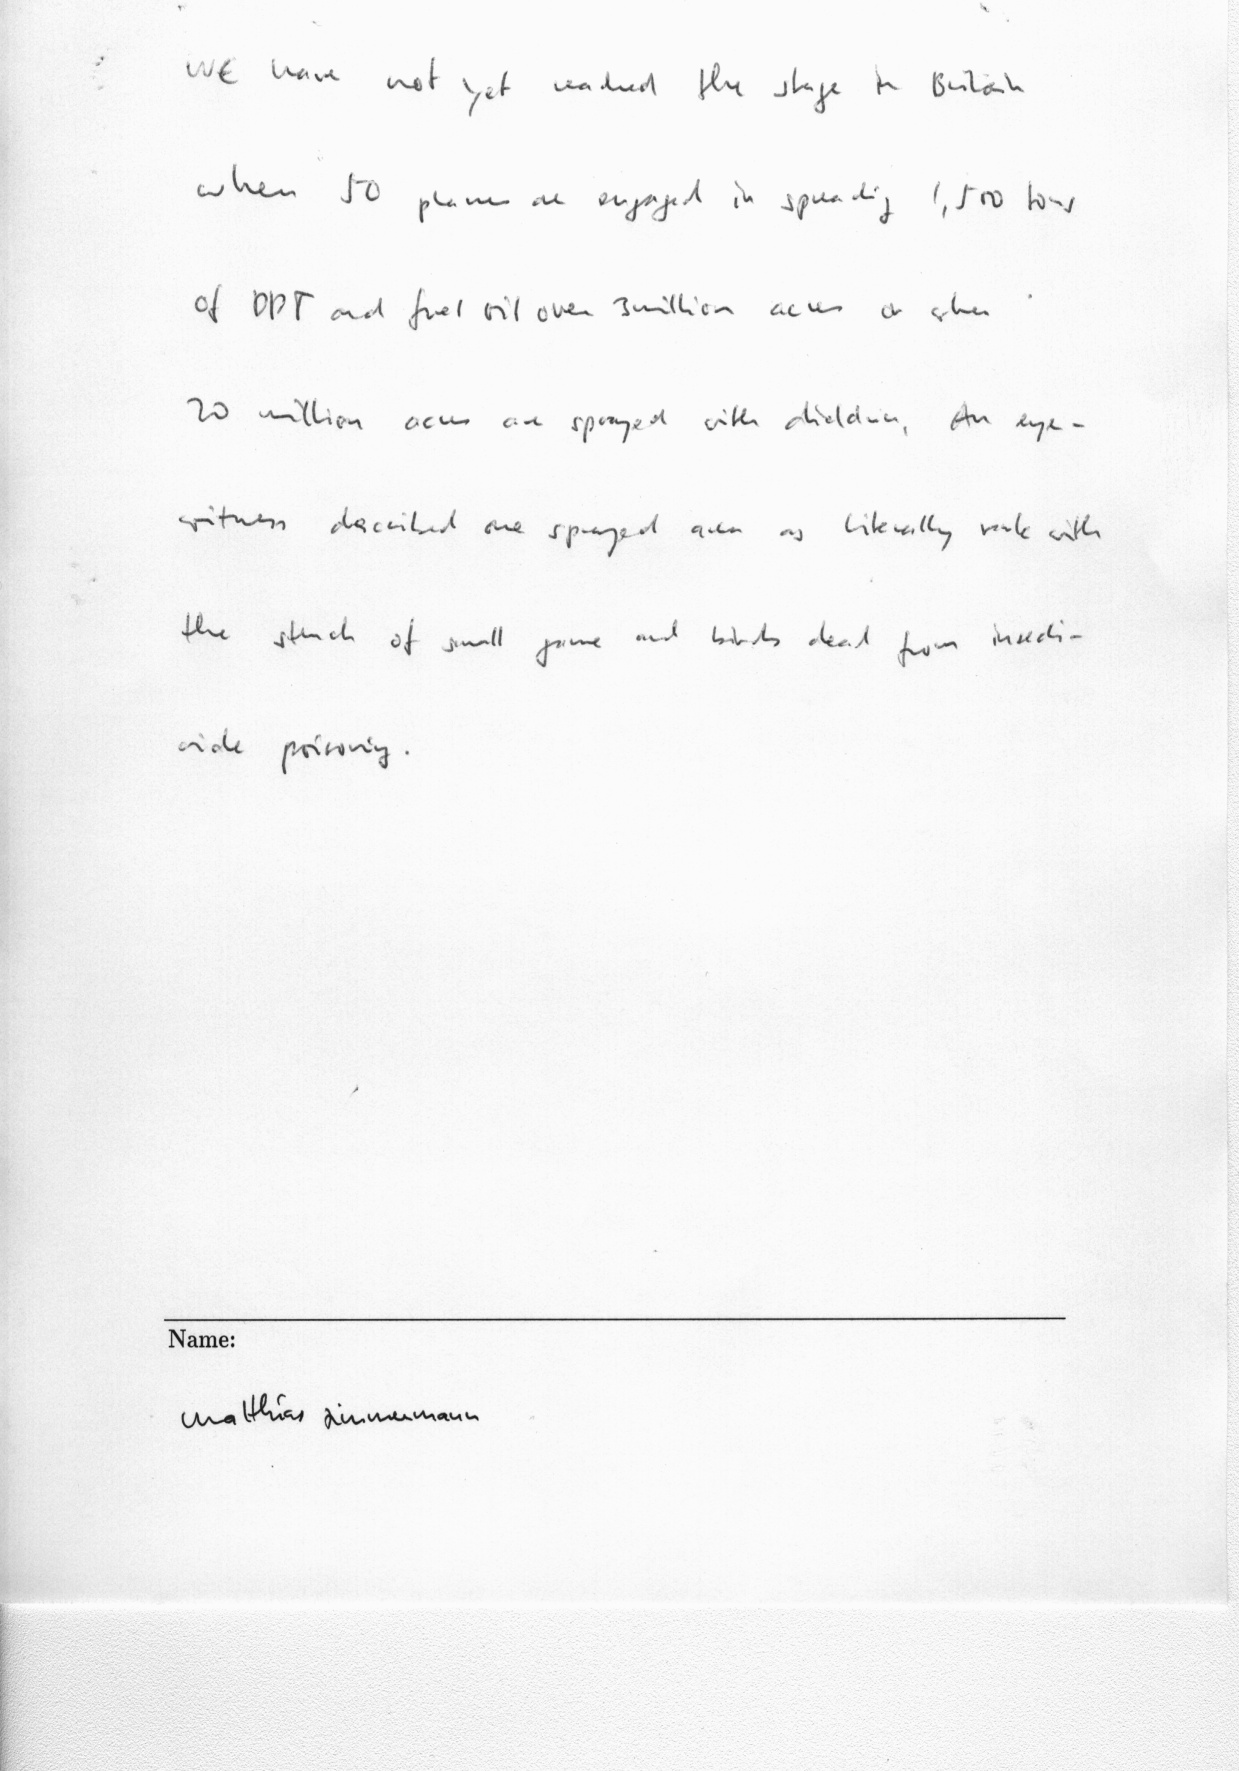 WE have not yet reached the stage in Britain
when 50 planes are engaged in spreading 1,500 tons
of DDT and fuel oil over 3 million acres or when
20 million acres are sprayed with dieldrin. An eye-
witness described one sprayed area as literally rank with
the stench of small game and birds dead from insecti-
cide poisoning.
Name:
Matthias Zimmermann